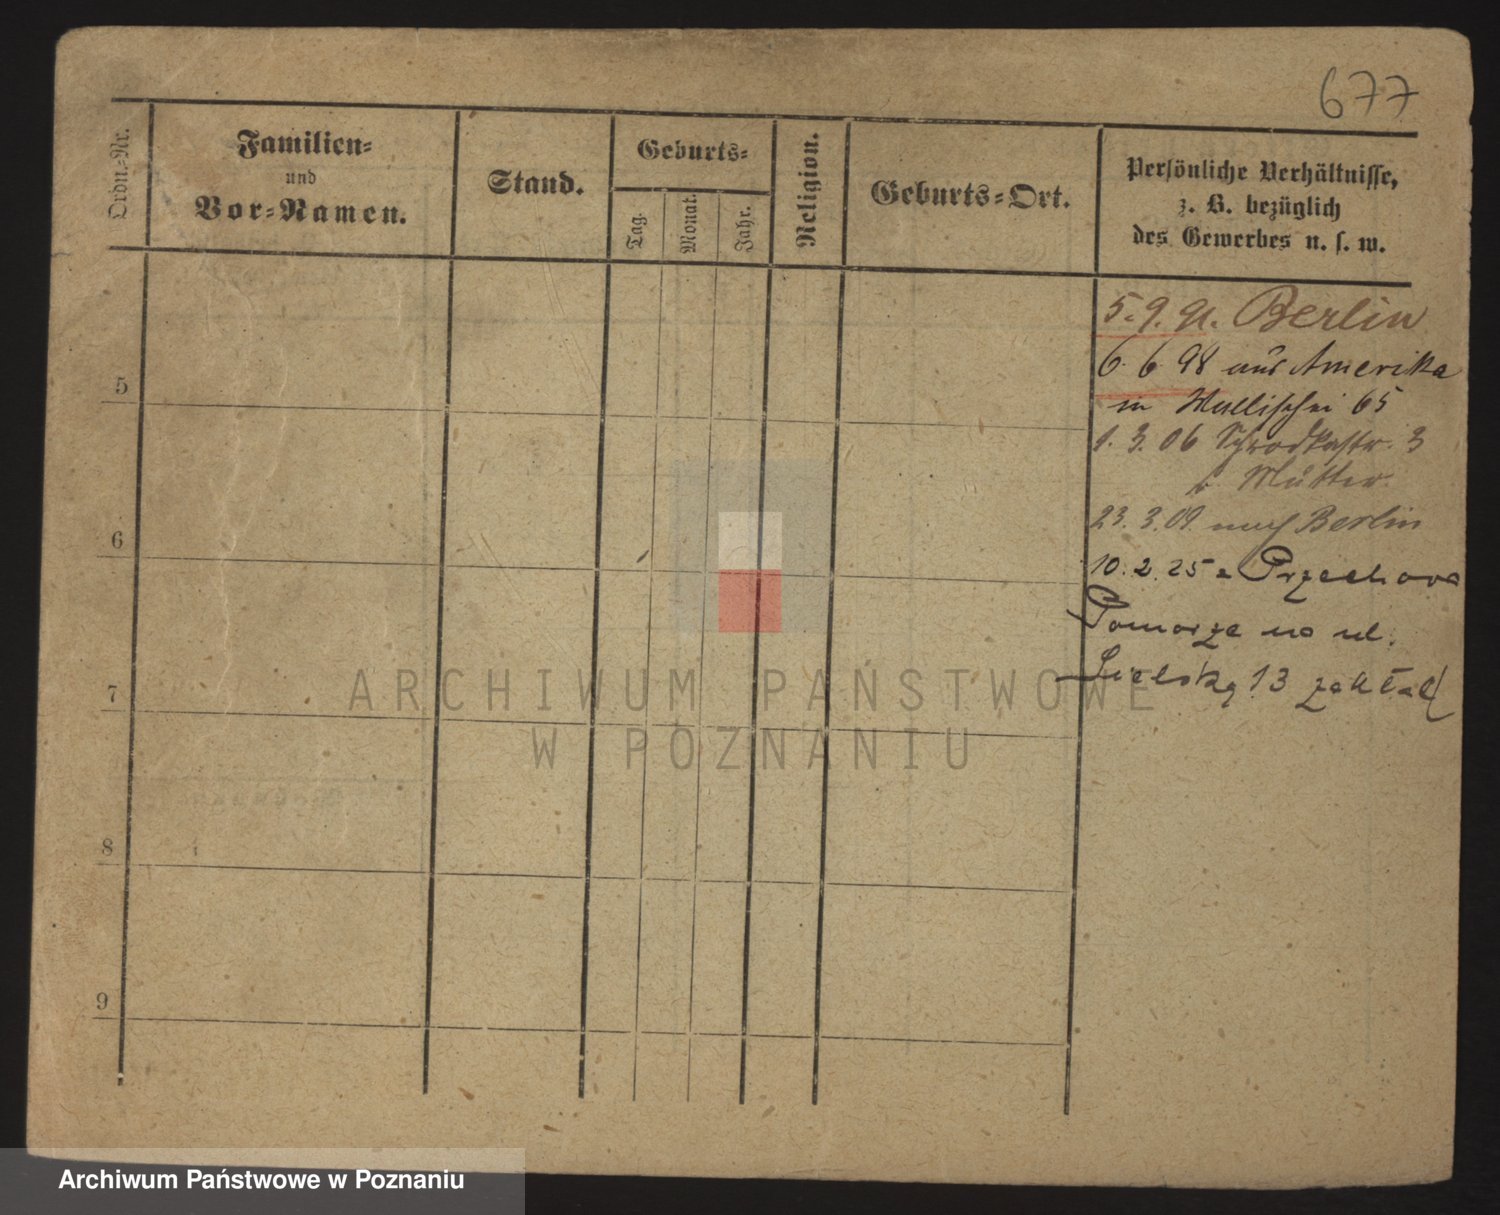 677
Ordn.-Nr.
Familien-
und
Vor-Namen.
Stand.
Geburts-
Tag.
Monat.
Jahr.
Religion.
Geburts-Ort.
Persönliche Verhältnisse,
z. B. bezüglich
des Gewerbes u. s. w.
5. 9. 91. Berlin
6. 6 98 aus Amerika
in Wallischei 65
1. 3. 06 Schrodkastr. 3
b. Mutter.
23. 3. 09. nach Berlin
10. 2. 25 z Przechowa
Pomorze na ul.
13 zakład
5
6
7
8
9
ARCHIWUM PAŃSTWOWE
W POZNANIU
Archiwum Państwowe w Poznaniu